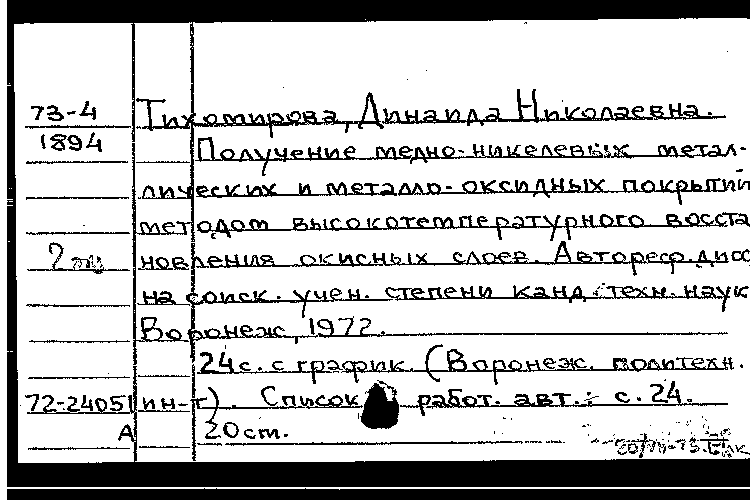 73-4 Тихомирова, Динаида Николаевна.
1894 Получение медно-никелевых метал-
лических и металло-оксидных покрытий
методом высокотемпературного восста
2 новления окисных слоев. Автореф. дисс
на соиск. учен. степени канд. техн. наук
Воронеж, 1972.
24с. с график. (Воронеж. политехн.
72-24051 ин-т). Список работ. авт.: с. 24.
А 20см.